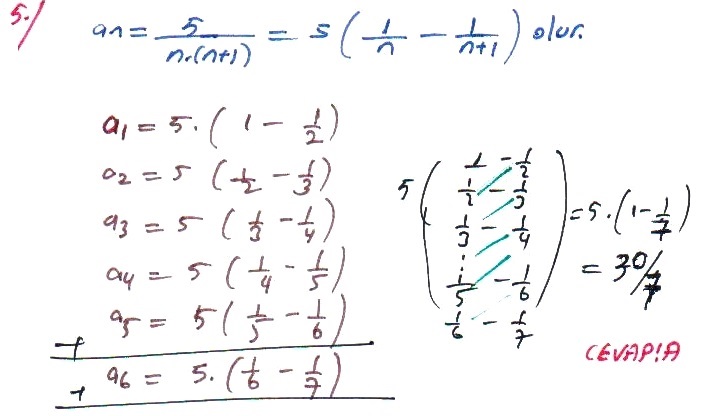 5./ an = 5/(n.(n+1)) = 5 (1/n - 1/(n+1)) olur.
a1 = 5. (1 - 1/2)
a2 = 5 (1/2 - 1/3)
a3 = 5 (1/3 - 1/4)
a4 = 5 (1/4 - 1/5)
a5 = 5 (1/5 - 1/6)
+
+ a6 = 5. (1/6 - 1/7)
5 ( 1 - 1/2
1/2 - 1/3
1/3 - 1/4
⋮
1/5 - 1/6
1/6 - 1/7 ) = 5. (1 - 1/7)
= 30/7
CEVAP!A